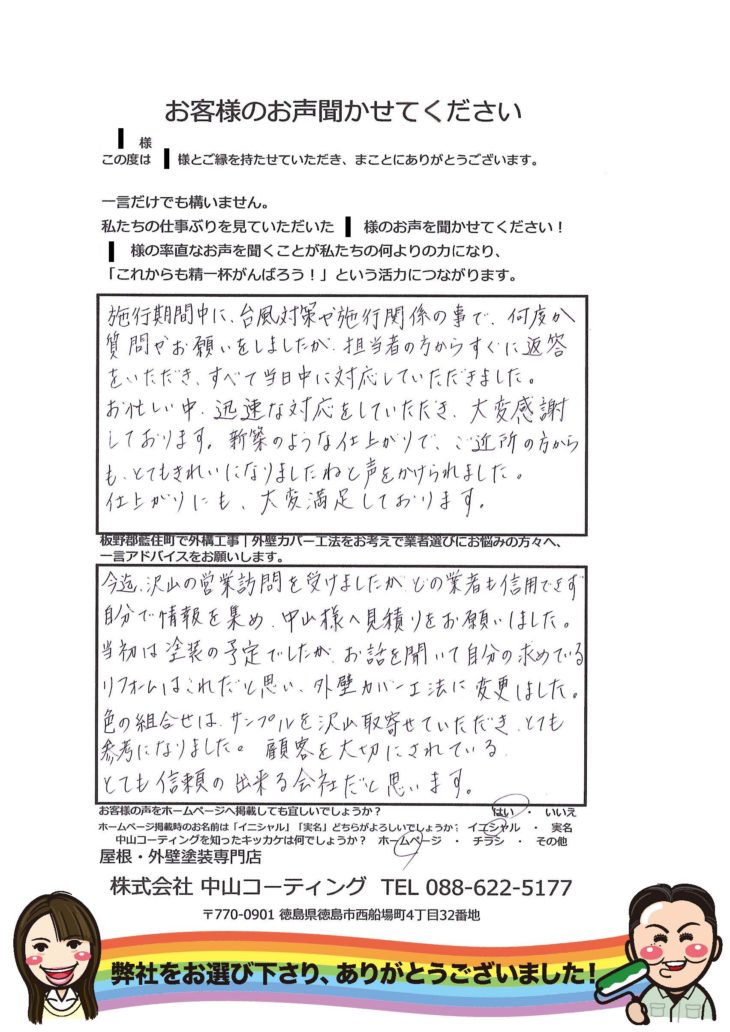 お客様のお声聞かせてください
様
この度は 様とご縁を持たせていただき、まことにありがとうございます。
一言だけでも構いません。
私たちの仕事ぶりを見ていただいた 様のお声を聞かせてください！
様の率直なお声を聞くことが私たちの何よりの力になり、
「これからも精一杯がんばろう！」という活力につながります。
施行期間中に、台風対策や施行関係の事で、何度か
質問やお願いをしましたが、担当者の方からすぐに返答
をいただき、すべて当日中に対応していただきました。
お忙しい中、迅速な対応をしていただき、大変感謝
しております。新築のような仕上がりで、ご近所の方から
も、とてもきれいになりましたねと声をかけられました。
仕上がりにも、大変満足しております。
板野郡藍住町で外構工事｜外壁カバー工法をお考えで業者選びにお悩みの方々へ、
一言アドバイスをお願いします。
今迄、沢山の営業訪問を受けましたが、どの業者も信用できず
自分で情報を集め、中山様へ見積りをお願いしました。
当初は塗装の予定でしたが、お話を聞いて自分の求めている
リフォームはこれだと思い、外壁カバー工法に変更しました。
色の組合せは、サンプルを沢山取寄せていただき、とても
参考になりました。顧客を大切にされている、
とても信頼の出来る会社だと思います。
お客様の声をホームページへ掲載しても宜しいでしょうか？ はい ・ いいえ
ホームページ掲載時のお名前は「イニシャル」「実名」どちらがよろしいでしょうか？ イニシャル ・ 実名
中山コーティングを知ったキッカケは何でしょうか？ ホームページ ・ チラシ ・ その他
屋根・外壁塗装専門店
株式会社 中山コーティング TEL 088-622-5177
〒770-0901 徳島県徳島市西船場町4丁目32番地
弊社をお選び下さり、ありがとうございました！